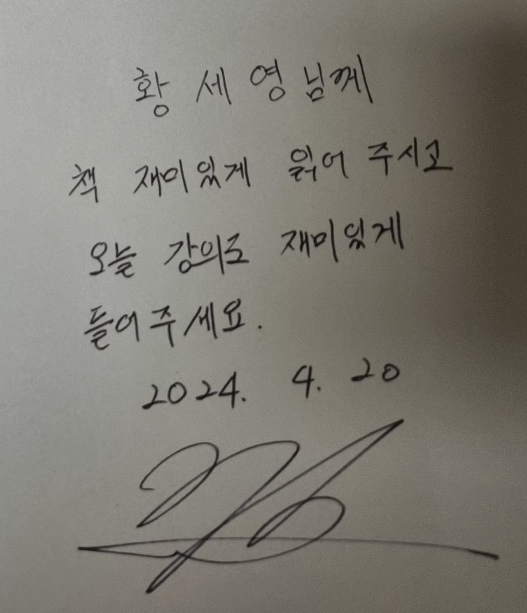 황 세 영님께
책 재미있게 읽어 주시고
오늘 강의도 재미있게
들어주세요.
2024. 4. 20